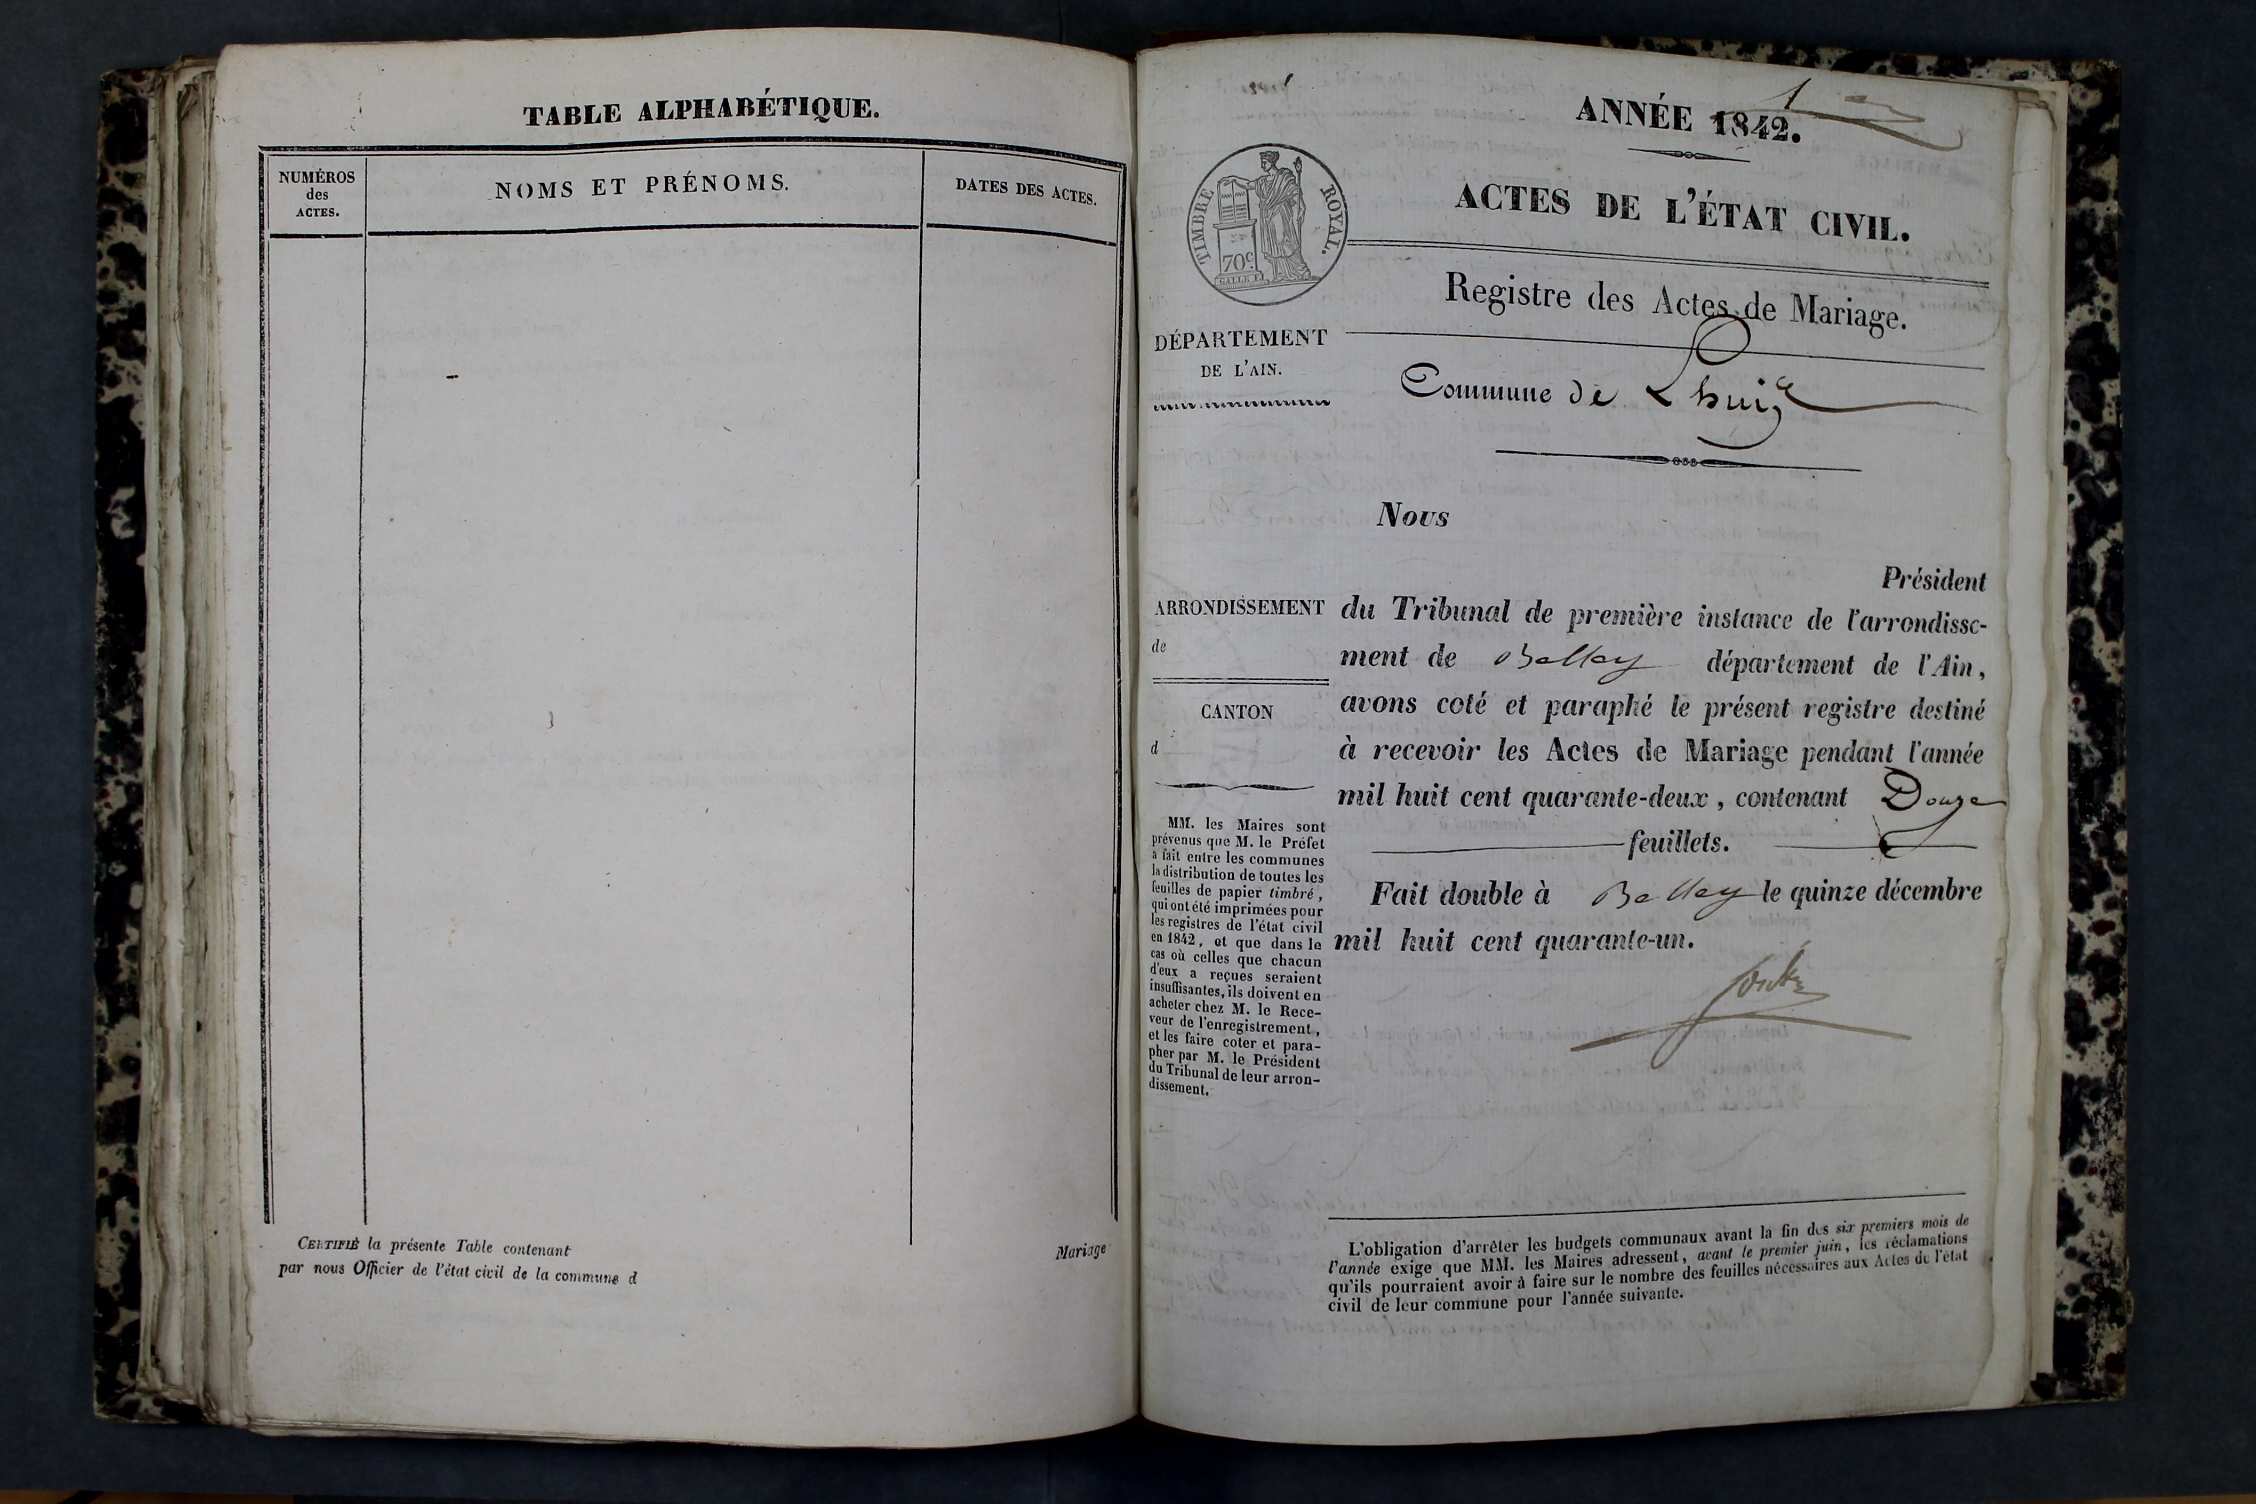 TABLE ALPHABÉTIQUE.
NUMÉROS
des
ACTES.
NOMS ET PRÉNOMS.
DATES DES ACTES.
CERTIFIÉ la présente Table contenant
Mariage
par nous Officier de l'état civil de la commune d
1
ANNÉE 1842.
TIMBRE ROYAL.
70c
ACTES DE L'ÉTAT CIVIL.
Registre des Actes de Mariage.
DÉPARTEMENT
DE L'AIN.
Commune de Lhuis
Nous
Président
ARRONDISSEMENT
de
CANTON
d
du Tribunal de première instance de l'arrondisse-
ment de Belley département de l'Ain,
avons coté et paraphé le présent registre destiné
à recevoir les Actes de Mariage pendant l'année
mil huit cent quarante-deux, contenant Douze
feuillets.
Fait double à Belley le quinze décembre
mil huit cent quarante-un.
MM. les Maires sont
prévenus que M. le Préfet
a fait entre les communes
la distribution de toutes les
feuilles de papier timbré,
qui ont été imprimées pour
les registres de l'état civil
en 1842, et que dans le
cas où celles que chacun
d'eux a reçues seraient
insuffisantes, ils doivent en
acheter chez M. le Rece-
veur de l'enregistrement,
et les faire coter et para-
pher par M. le Président
du Tribunal de leur arron-
dissement.
L'obligation d'arrêter les budgets communaux avant la fin des six premiers mois de
l'année exige que MM. les Maires adressent, avant le premier juin, les réclamations
qu'ils pourraient avoir à faire sur le nombre des feuilles nécessaires aux Actes de l'état
civil de leur commune pour l'année suivante.